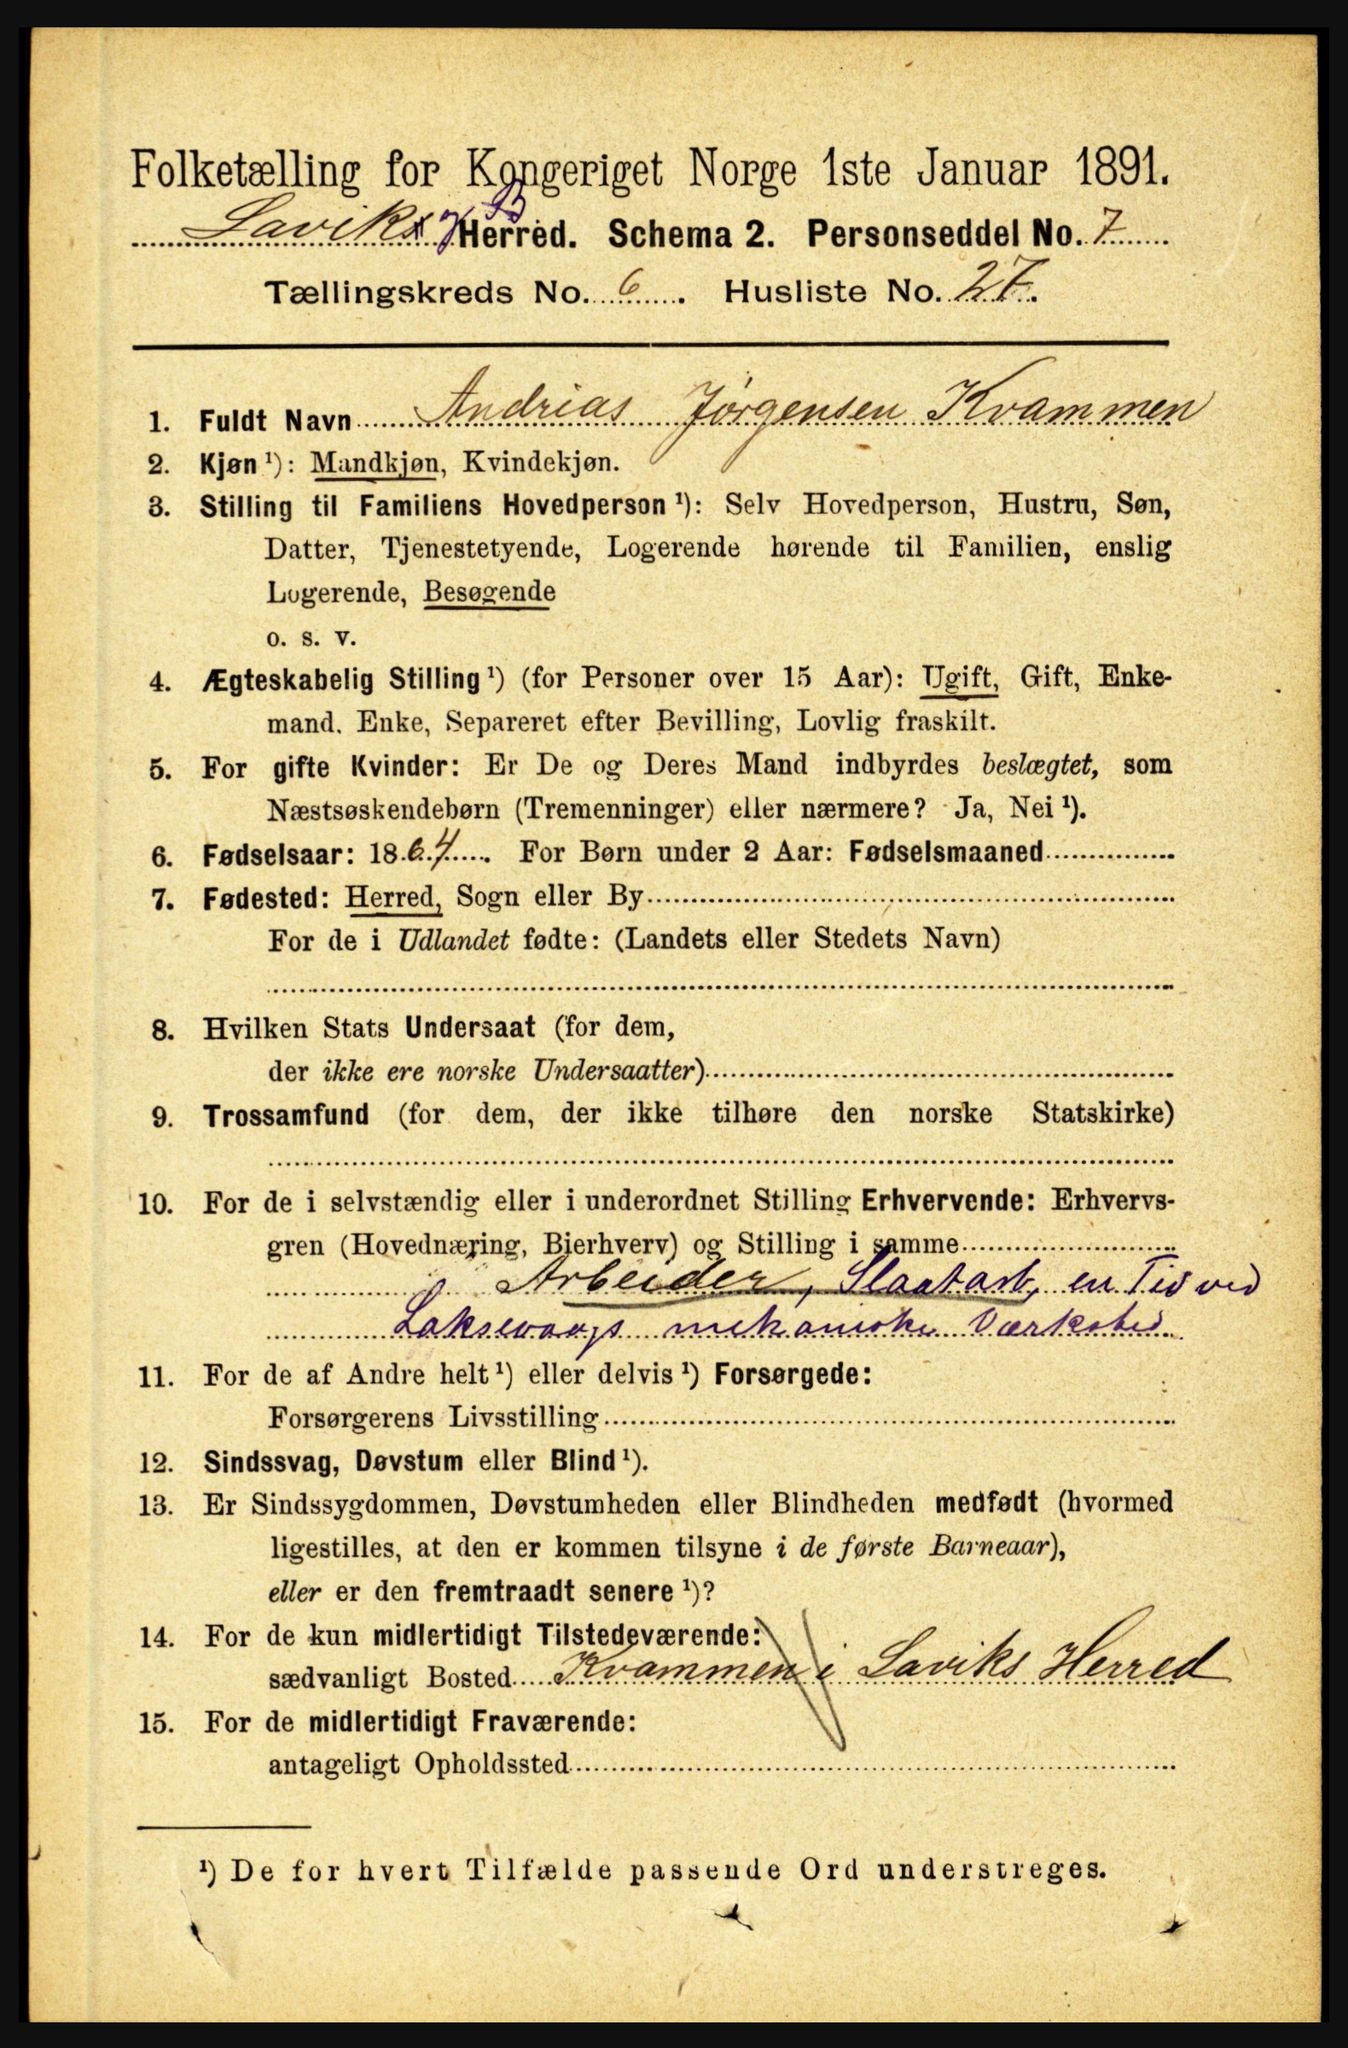 Folketælling for Kongeriget Norge 1ste Januar 1891.
Laviks og B Herred. Schema 2. Personseddel No. 7
Tællingskreds No. 6. Husliste No. 27.
1. Fuldt Navn Andrias Jørgensen Kvammen
2. Kjøn ¹): Mandkjøn, Kvindekjøn.
3. Stilling til Familiens Hovedperson ¹): Selv Hovedperson, Hustru, Søn,
Datter, Tjenestetyende, Logerende hørende til Familien, enslig
Logerende, Besøgende
o. s. v.
4. Ægteskabelig Stilling ¹) (for Personer over 15 Aar): Ugift, Gift, Enke-
mand. Enke, Separeret efter Bevilling, Lovlig fraskilt.
5. For gifte Kvinder: Er De og Deres Mand indbyrdes beslægtet, som
Næstsøskendebørn (Tremenninger) eller nærmere? Ja, Nei ¹).
6. Fødselsaar: 1864. For Børn under 2 Aar: Fødselsmaaned
7. Fødested: Herred, Sogn eller By
For de i Udlandet fødte: (Landets eller Stedets Navn)
8. Hvilken Stats Undersaat (for dem,
der ikke ere norske Undersaatter)
9. Trossamfund (for dem, der ikke tilhøre den norske Statskirke)
10. For de i selvstændig eller i underordnet Stilling Erhvervende: Erhvervs-
gren (Hovednæring, Bierhverv) og Stilling i samme
Arbeider, Slaatarb, en Tid ved
Laksevaags mekaniske Værksted
11. For de af Andre helt ¹) eller delvis ¹) Forsørgede:
Forsørgerens Livsstilling
12. Sindssvag, Døvstum eller Blind ¹).
13. Er Sindssygdommen, Døvstumheden eller Blindheden medfødt (hvormed
ligestilles, at den er kommen tilsyne i de første Barneaar),
eller er den fremtraadt senere ¹)?
14. For de kun midlertidigt Tilstedeværende:
sædvanligt Bosted Kvammen i Laviks Herred
15. For de midlertidigt Fraværende:
antageligt Opholdssted
¹) De for hvert Tilfælde passende Ord understreges.